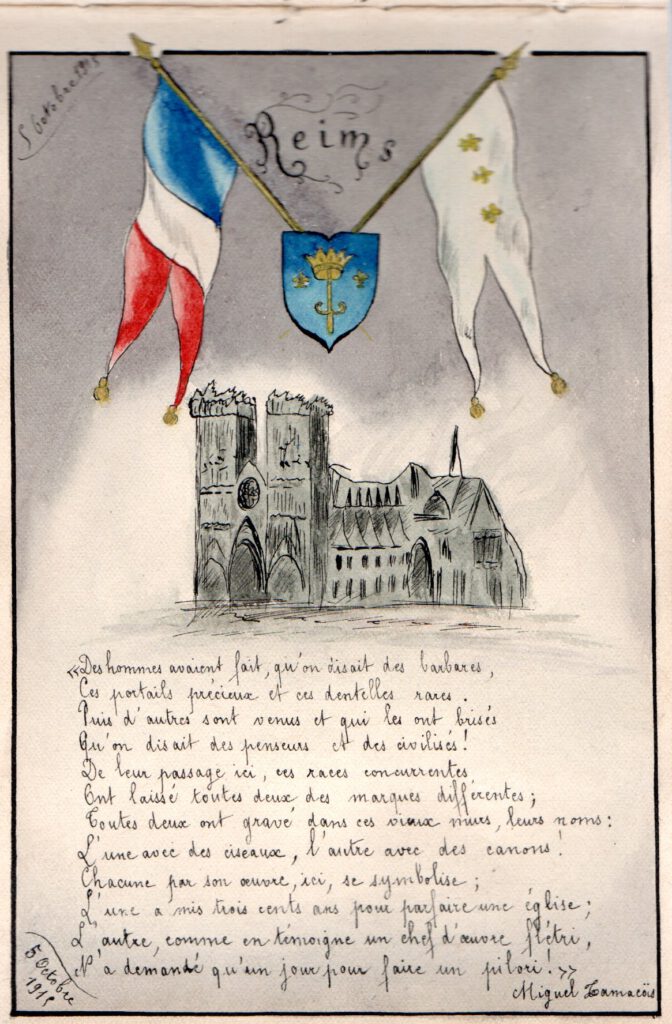 5 Octobre 1915
Reims
« Des hommes avaient fait, qu'on disait des barbares,
Ces portails précieux et ces dentelles rares.
Puis d'autres sont venus et qui les ont brisés
Qu'on disait des penseurs et des civilisés !
De leur passage ici, ces races concurrentes
Ont laissé toutes deux des marques différentes ;
Toutes deux ont gravé dans ces vieux murs, leurs noms :
L'une avec des ciseaux, l'autre avec des canons !
Chacune par son œuvre, ici, se symbolise ;
L'une a mis trois cents ans pour parfaire une église ;
L'autre, comme en témoigne un chef d'œuvre flétri,
N'a demandé qu'un jour pour faire un pilori ! »
Miguel Zamacoïs
5 Octobre
1915